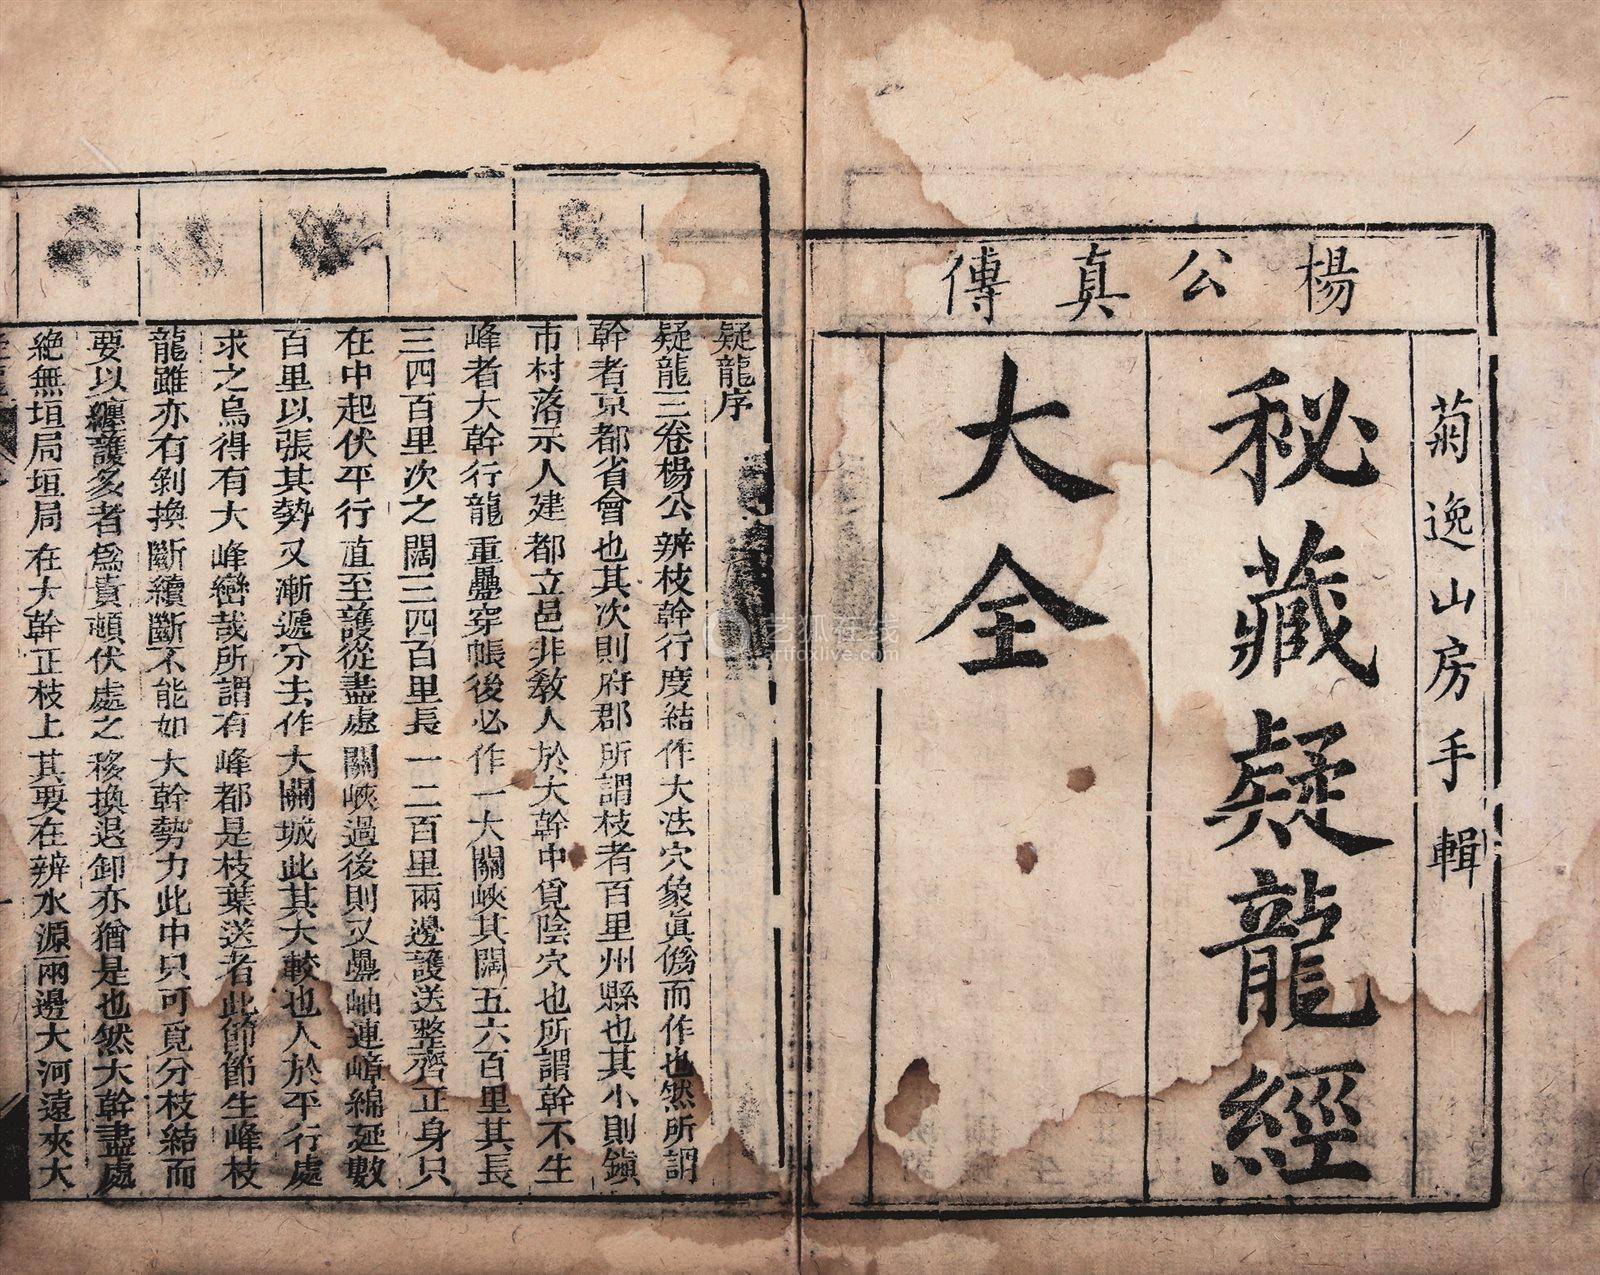 楊公真傳
菊逸山房手輯
秘藏疑龍經
大全
疑龍序
疑龍三卷楊公辨枝幹行度結作大法穴象眞僞而作也然所謂
幹者京都省會也其次則府郡所謂枝者百里州縣也其小則鎭
市村落示人建都立邑非敎人於大幹中覓陰穴也所謂幹不生
峰者大幹行龍重疊穿帳後必作一大關峽其闊五六百里其長
三四百里次之闊三四百里長一二百里兩邊護送整齊正身只
在中起伏平行直至護從盡處關峽過後則又疊岫連嶂綿延數
百里以張其勢又漸遞分去作大關城此其大較也人於平行處
求之烏得有大峰巒哉所謂有峰都是枝葉送者此節節生峰枝
龍雖亦有剝換斷續斷不能如大幹勢力此中只可覓分枝結而
要以纏護多者爲貴頓伏處之移換退卸亦猶是也然大幹盡處
絶無垣局垣局在大幹正枝上其要在辨水源兩邊大河遠夾大
艺狐在线
artfoxlive.com